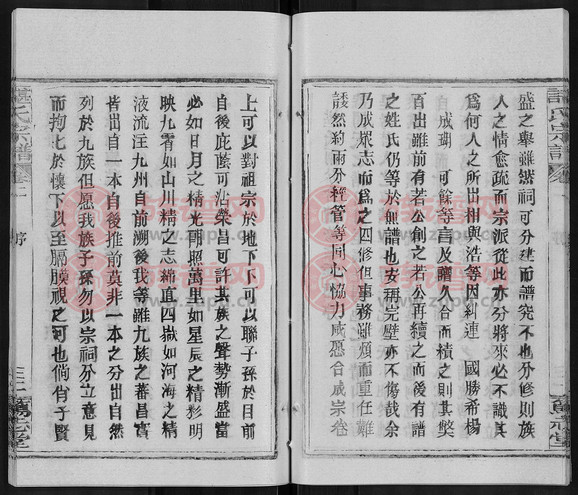 盛之舉雖祠可分建而譜究不也外修則族
人之情愈疏而宗派從此亦分將來必不識其
為何人之所出樹與浩等因糾連 國勝希楊
成瑚 可餘等言及贈久合而積之則其獎
百出雖前有若公創之若公再續之而後有譜
之姓氏仍等於無譜也安稱完璧亦不傷哉余
乃成眾志而為之四修但事務雖煩而重任難
諉然約兩分經管等同心協力咸愿合成宗卷
上可以對祖宗於地下下可以聯子孫於目前
自後庇蔭可沾榮昌可許矣族之聲勢漸盛當
必如日月之精光再照萬里如星辰之精彩明
映九霄如山川精之志綿亘四嶽如河海之精
液流注九州自前溯後我等雖九族之蕃昌實
皆出自一本自後推前莫非一本之分出自然
列於九族但愿我族子孫勿以宗祠分立意見
而拘拘於懷下以至膈膜視之可也倘肖子賢
氏宗譜 卷 序 篤志堂